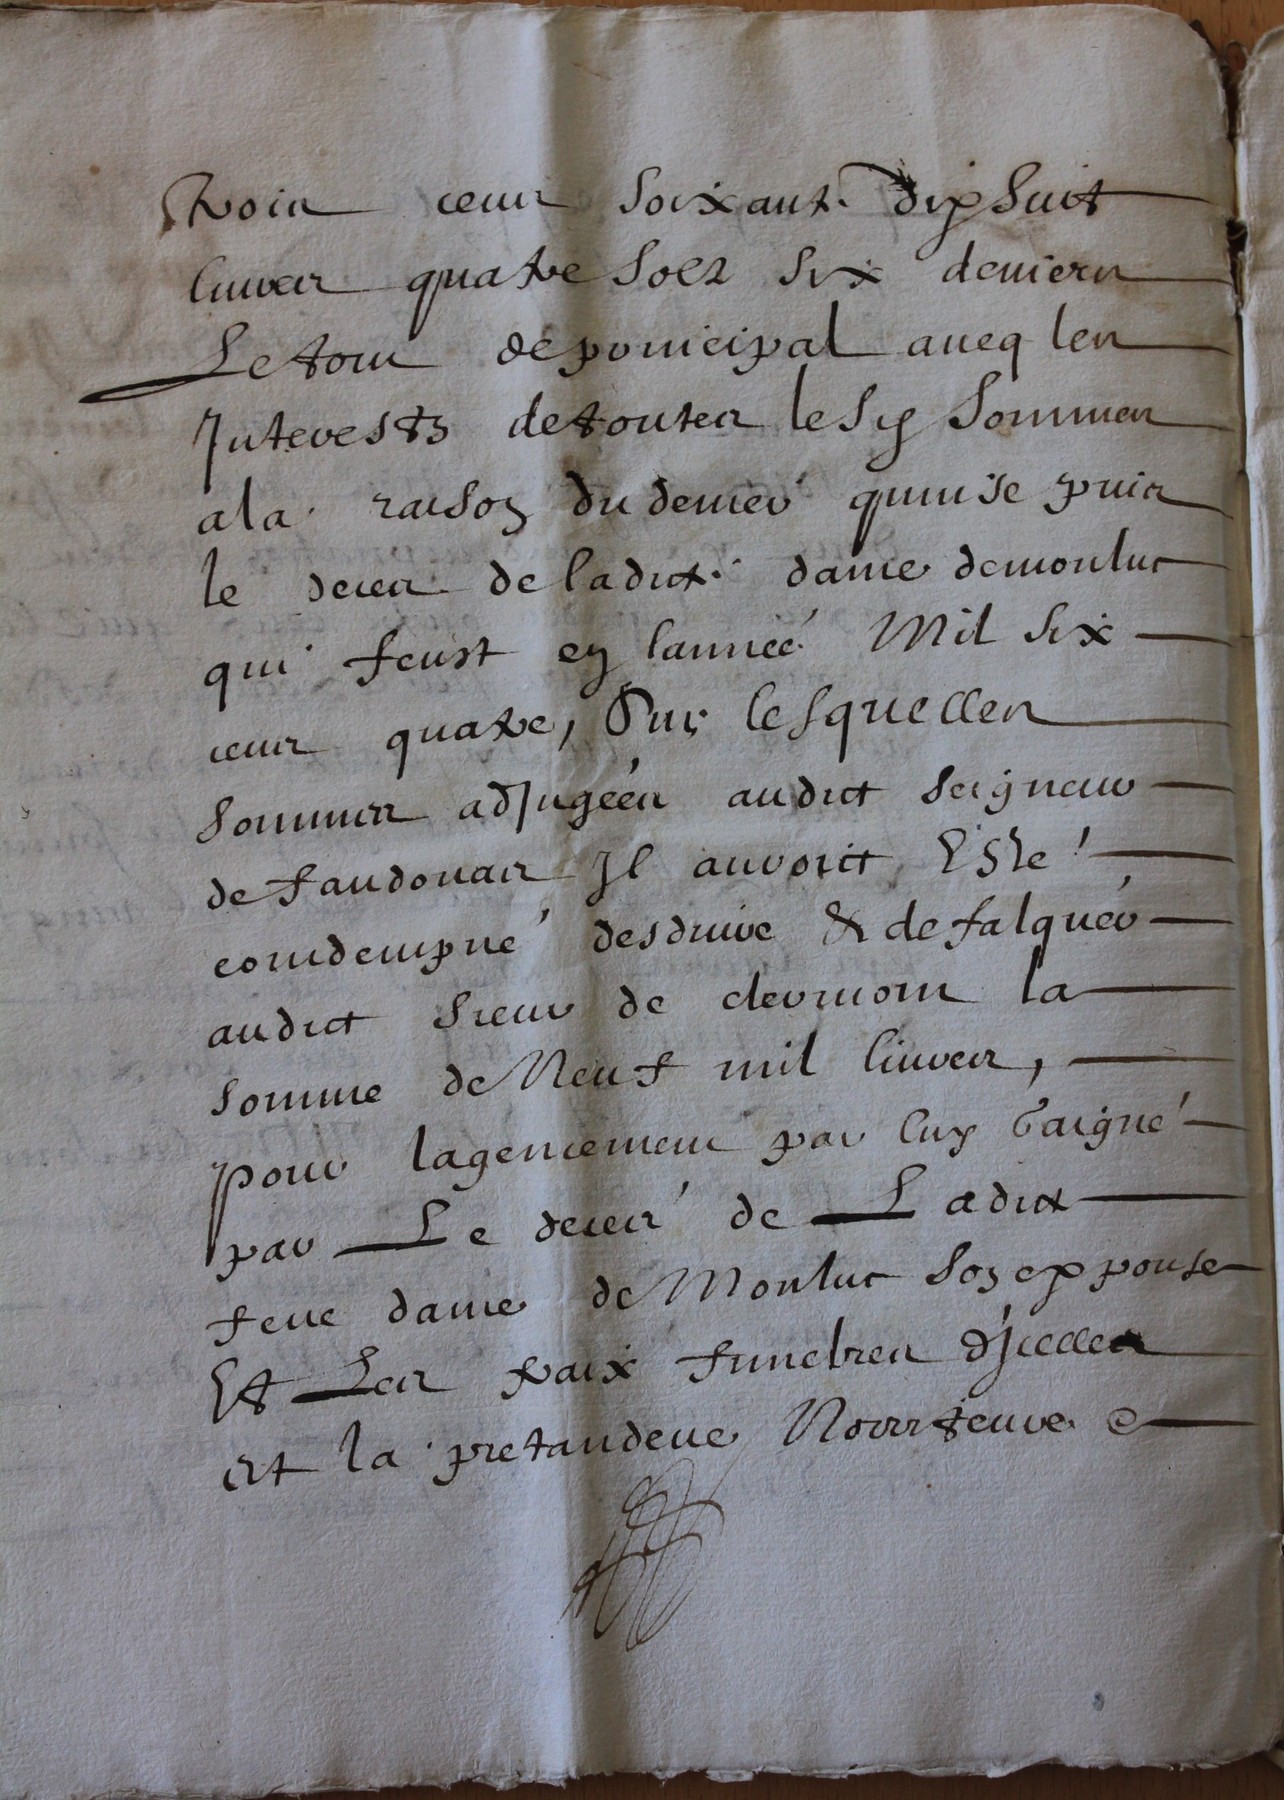 trois cens soixante dix huict
livres quatre solz six deniers
Le tout de principal aveq les
Interestz de toutes lesd sommes
a la raison du denier quinse puis
le deces de ladicte dame de monluc
qui feust en lannee Mil six
cens quatre, Sur lesquelles
sommes adjugées audict seigneur
de faudouas Il auroict Esté
condempné desduire & defalquer
audict sieur de clermont la
somme de Neuf mil livres,
pour lagencement par luy Gaigné
par Le deces de Ladicte
feue dame de Monluc son exppouse
Et Les fraix funebres d'Icelle
et la pretandeue Nourriteure